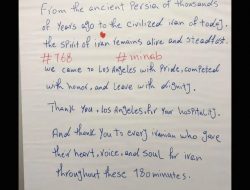 From the ancient Persia of thousands
of years ago to the civilized iran of today,
the spirit of iran remains alive and steadfast.
#168 #minab
we came to Los Angeles with pride, competed
with honor, and leave with dignity.
Thank you, Los Angeles, for your hospitality.
And thank you to every iranian who gave
their heart, voice, and soul for iran
throughout these 180 minutes.